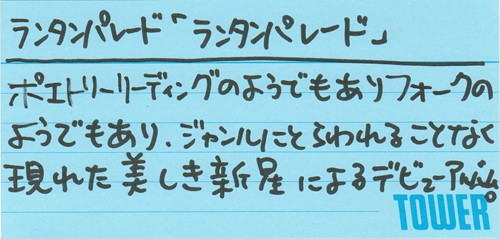 ランタンパレード「ランタンパレード」
ポエトリーリーディングのようでもありフォークの
ようでもあり、ジャンルにとらわれることなく
現れた美しき新星によるデビューアルバム。
TOWER